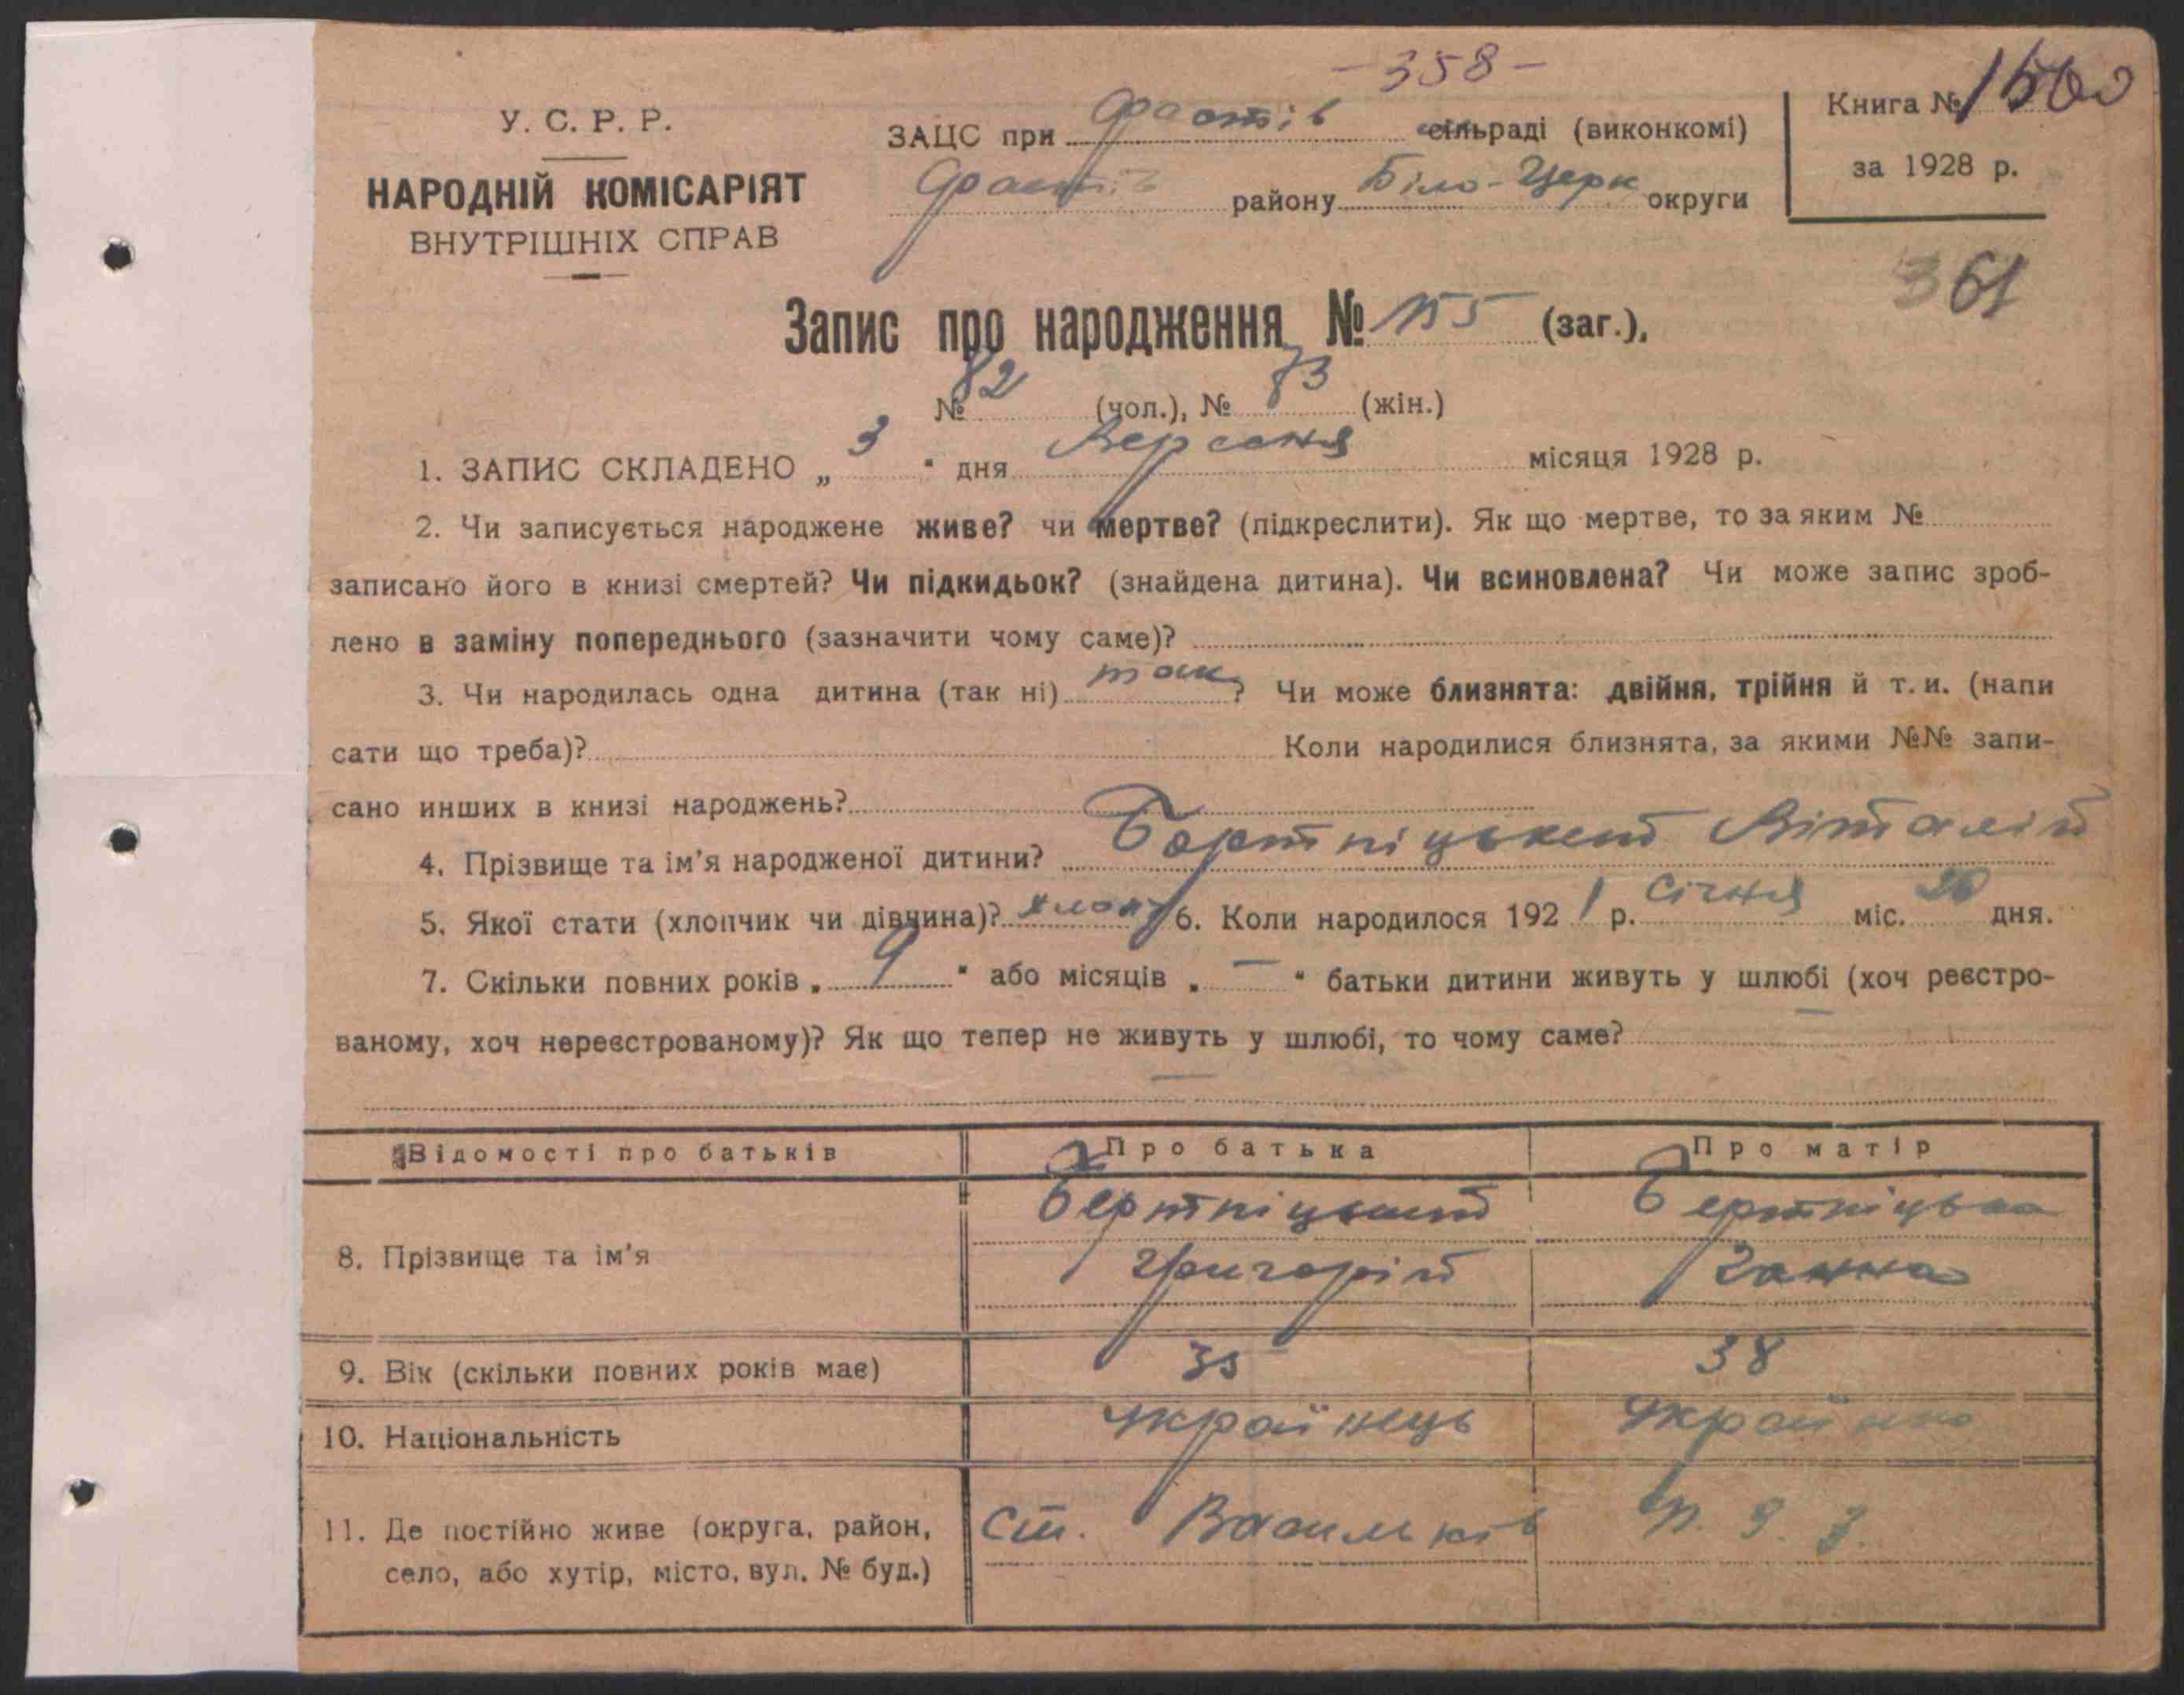 - 358 -
У. С. Р. Р.
НАРОДНІЙ КОМІСАРІЯТ
ВНУТРІШНІХ СПРАВ
ЗАЦС при Фастів сільраді (виконкомі)
Фастів району Біло-Церк округи
Книга №
за 1928 р.
361
Запис про народження № 155 (заг.),
№ 82 (чол.), № 73 (жін.)
1. ЗАПИС СКЛАДЕНО „ 3 " дня Вересня місяця 1928 р.
2. Чи записується народжене живе? чи мертве? (підкреслити). Як що мертве, то за яким №
записано його в книзі смертей? Чи підкидьок? (знайдена дитина). Чи всиновлена? Чи може запис зроб-
лено в заміну попереднього (зазначити чому саме)?
3. Чи народилась одна дитина (так ні) так ? Чи може близнята: двійня, трійня й т. и. (напи
сати що треба)? Коли народилися близнята, за якими №№ запи-
сано инших в книзі народжень?
4. Прізвище та ім'я народженої дитини? Бортніцький Віталій
5. Якої стати (хлопчик чи дівчина)? хлоп 6. Коли народилося 192 1 р. Січня міс. 20 дня.
7. Скільки повних років „ 9 " або місяців „ — " батьки дитини живуть у шлюбі (хоч реєстро-
ваному, хоч нереєстрованому)? Як що тепер не живуть у шлюбі, то чому саме? —
—
Відомості про батьків Про батька Про матір
8. Прізвище та ім'я
Бертніцький Бертніцька
Григорій Ганна
9. Вік (скільки повних років має) 35 38
10. Національність Українець Українка
11. Де постійно живе (округа, район,
село, або хутір, місто, вул. № буд.)
Ст. Васильків П. З. З.